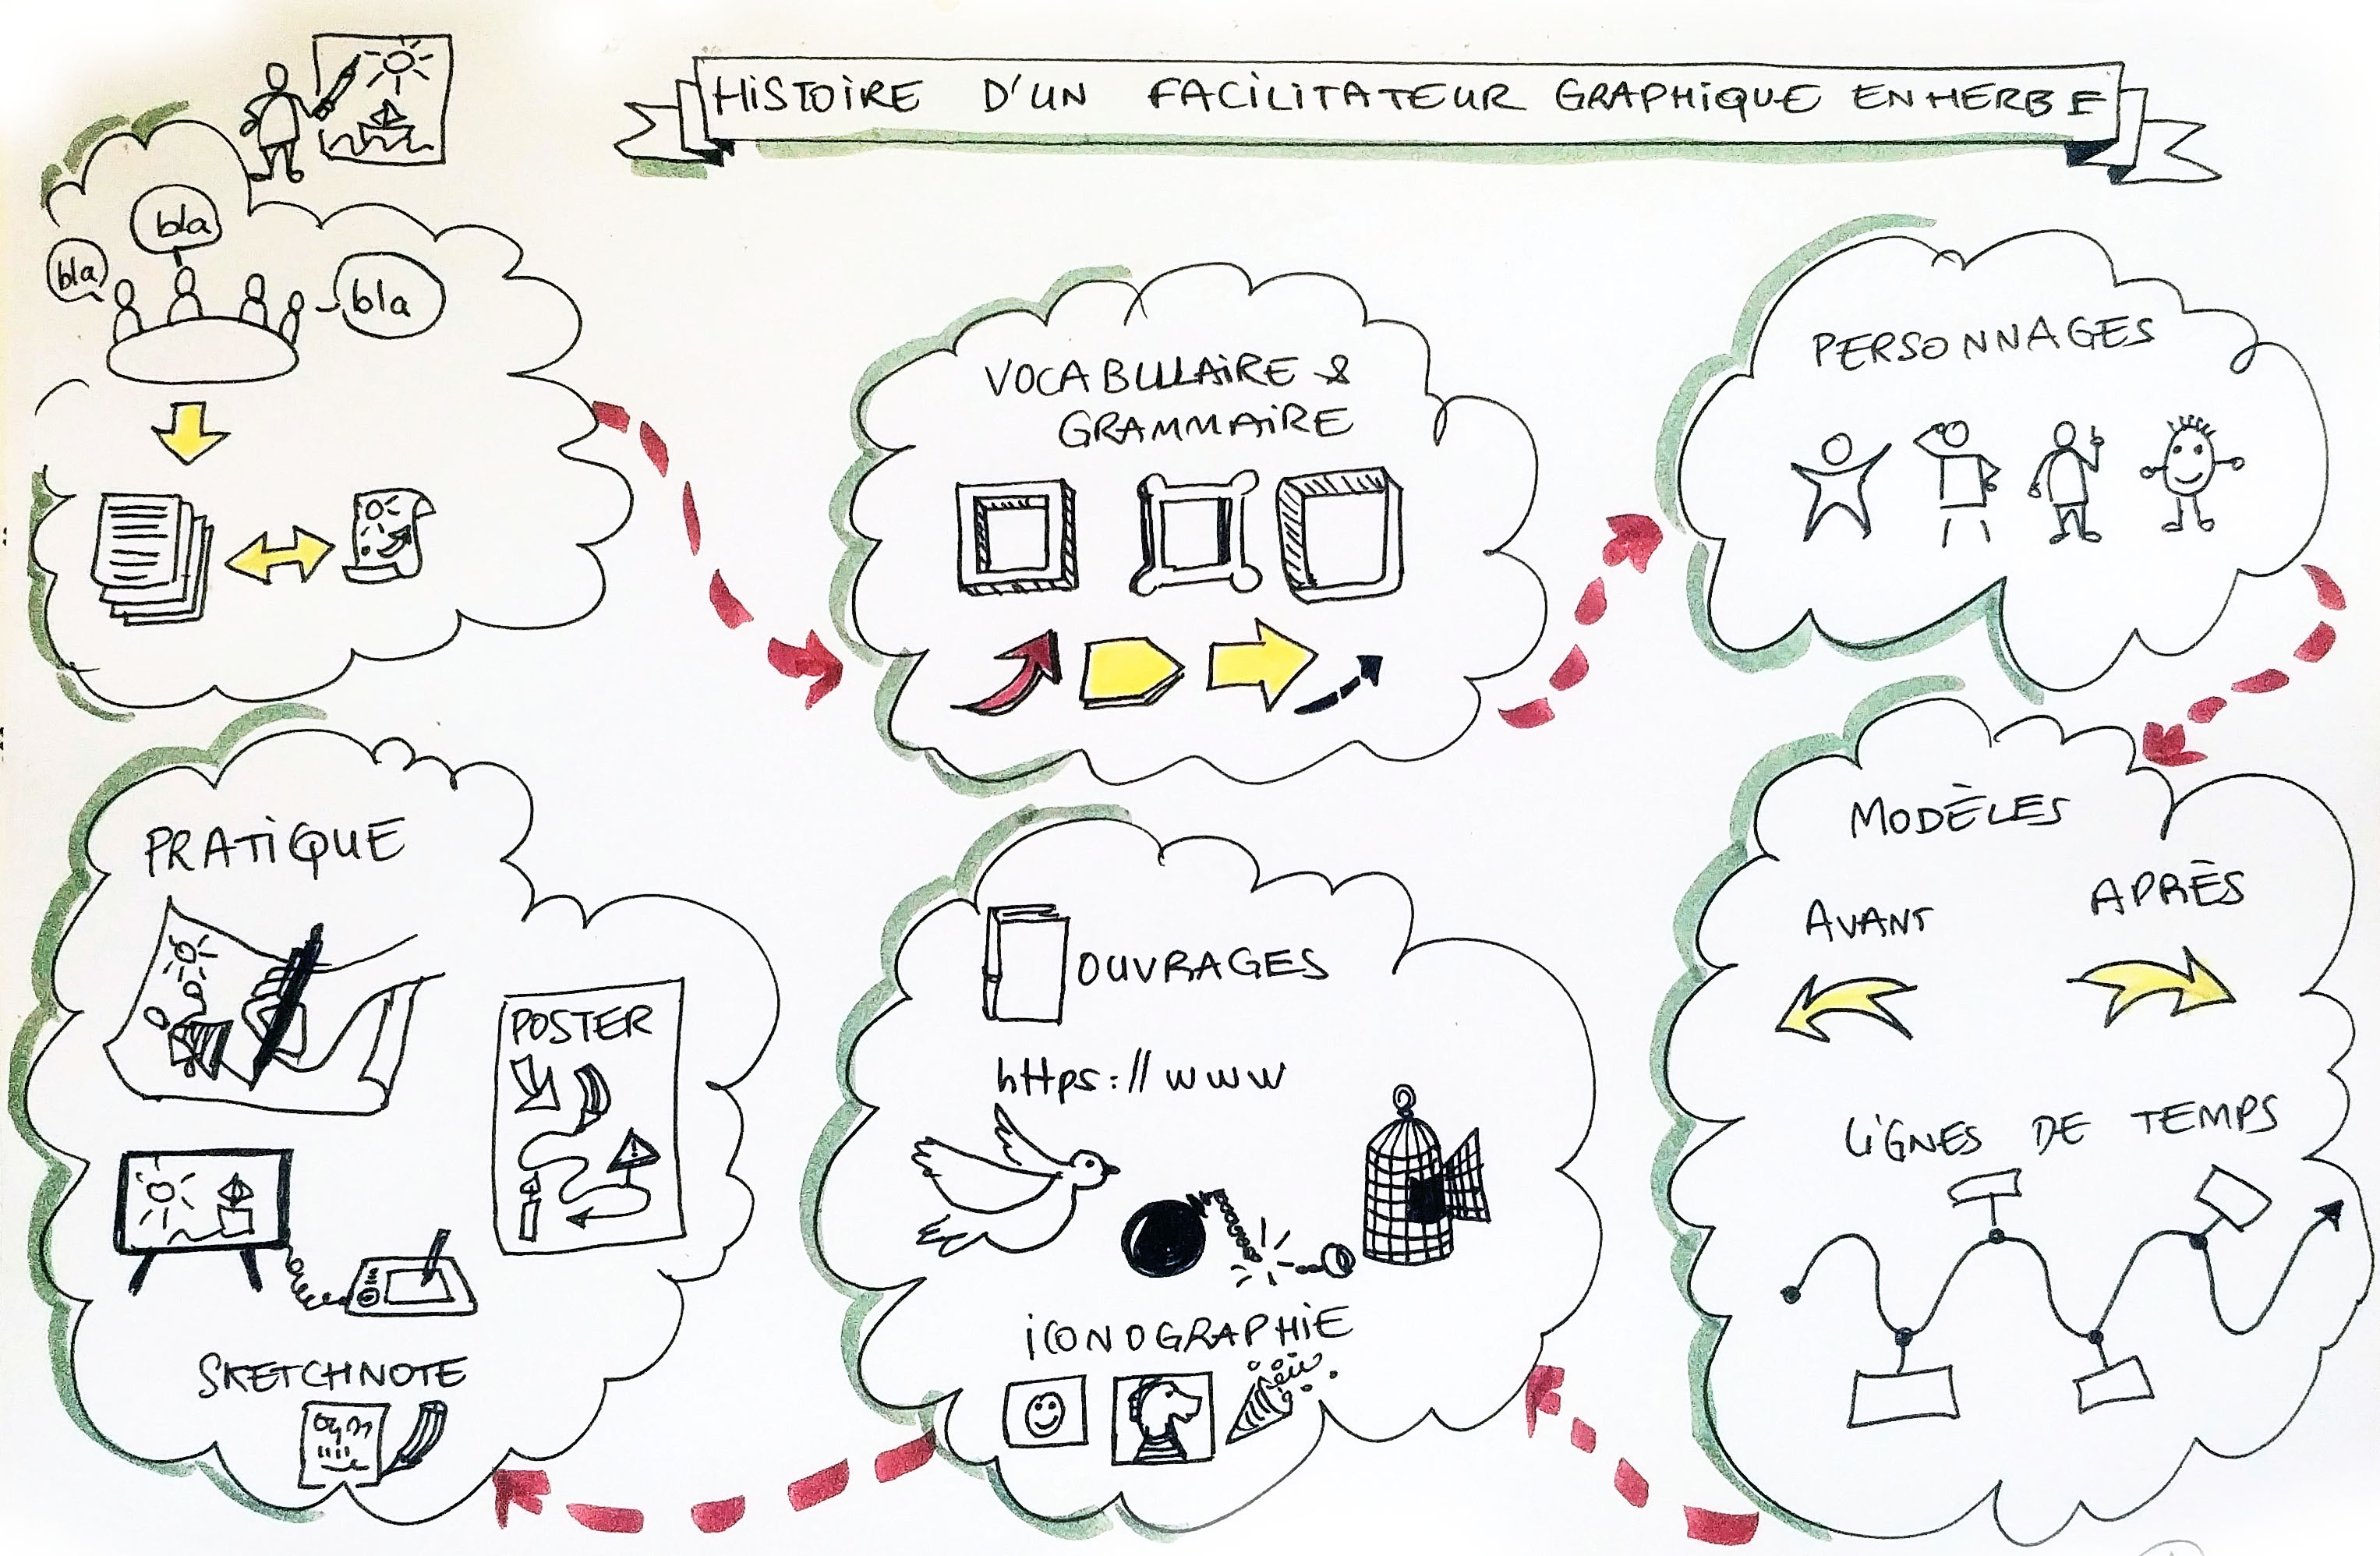 HISTOIRE D'UN FACILITATEUR GRAPHIQUE EN HERBE
bla
bla
bla
VOCABULAIRE &
GRAMMAIRE
PERSONNAGES
MODÈLES
AVANT
APRÈS
LIGNES DE TEMPS
OUVRAGES
https://www
ICONOGRAPHIE
PRATIQUE
POSTER
SKETCHNOTE